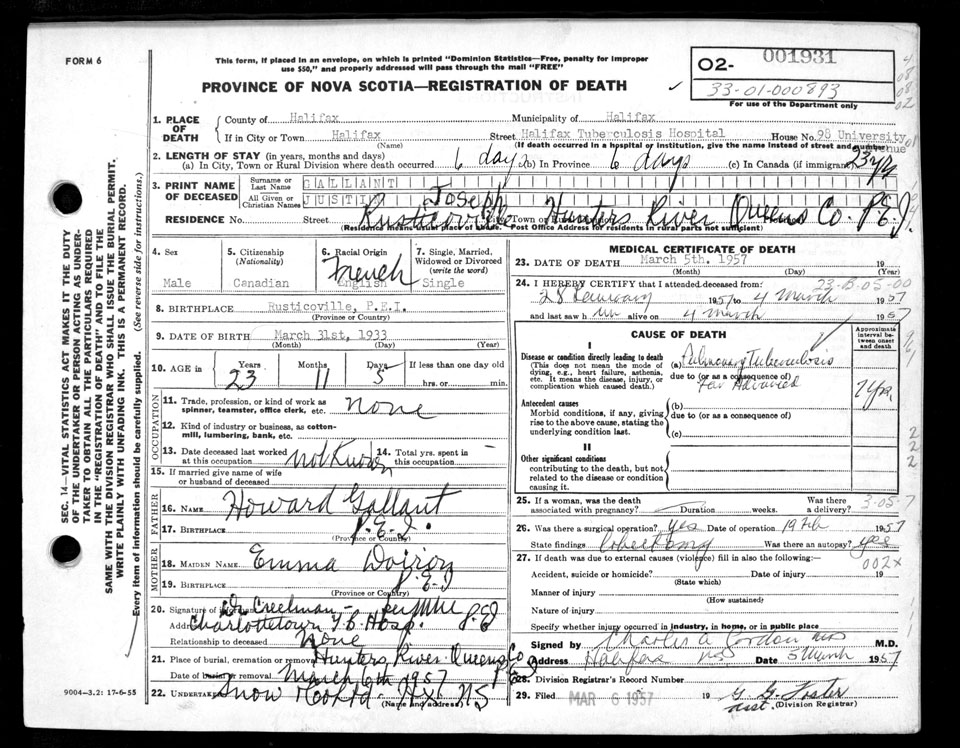 FORM 6
This form, if placed in an envelope, on which is printed "Dominion Statistics—Free, penalty for improper
use $50," and properly addressed will pass through the mail "FREE"
PROVINCE OF NOVA SCOTIA—REGISTRATION OF DEATH
O2- 001931
33-01-000893
For use of the Department only
1. PLACE OF DEATH
County of Halifax Municipality of Halifax
If in City or Town Halifax Street Halifax Tuberculosis Hospital House No. 98 University
(Name) (If death occurred in a hospital or institution, give the name instead of street and number) Avenue
2. LENGTH OF STAY (in years, months and days)
(a) In City, Town or Rural Division where death occurred 6 days (b) In Province 6 days (c) In Canada (if immigrant) 23 yrs
3. PRINT NAME OF DECEASED
Surname or Last Name GALLANT
All Given or Christian Names JUSTIN Joseph
RESIDENCE No. Street Rusticoville City/Town or Hunters River Queens Co. P.E.I.
(Residence means usual place of abode. Post Office Address for residents in rural parts not sufficient)
4. Sex Male
5. Citizenship (Nationality) Canadian
6. Racial Origin French English
7. Single, Married, Widowed or Divorced (write the word) Single
8. BIRTHPLACE Rusticoville, P.E.I.
(Province or Country)
9. DATE OF BIRTH March 31st, 1933
(Month) (Day) (Year)
10. AGE in Years 23 Months 11 Days 5 If less than one day old
hrs. or min.
OCCUPATION
11. Trade, profession, or kind of work as
spinner, teamster, office clerk, etc. None
12. Kind of industry or business, as cotton-
mill, lumbering, bank, etc.
13. Date deceased last worked at this occupation Not Known
14. Total yrs. spent in this occupation –
15. If married give name of wife
or husband of deceased
FATHER
16. NAME Howard Gallant
17. BIRTHPLACE P.E.I.
(Province or Country)
MOTHER
18. MAIDEN NAME Emma Doiron
19. BIRTHPLACE P.E.I
(Province or Country)
20. Signature of informant Dr Creelman - per
Address Charlottetown T.B. Hosp. P.E.I
Relationship to deceased None
21. Place of burial, cremation or removal Hunters River Queens Co
Date of burial or removal March 6th 1957 P.E.I
22. UNDERTAKER Snow & Co Ltd - Hx NS
(Name and address)
9004-3.2: 17-6-55
MEDICAL CERTIFICATE OF DEATH
23. DATE OF DEATH March 5th. 1957 19
(Month) (Day)
24. I HEREBY CERTIFY that I attended deceased from: 23-B-05-00
28 February 1957 to 4 March 1957
and last saw him alive on 4 March 1957
CAUSE OF DEATH
Approximate interval between onset and death
I
Disease or condition directly leading to death
(This does not mean the mode of
dying, e.g., heart failure, asthenia,
etc. It means the disease, injury, or
complication which caused death.)
(a) Pulmonary Tuberculosis
due to (or as a consequence of)
Far Advanced
7 yrs.
Antecedent causes
Morbid conditions, if any, giving
rise to the above cause, stating the
underlying condition last.
(b)
due to (or as a consequence of)
(c)
II
Other significant conditions
contributing to the death, but not
related to the disease or condition
causing it.
25. If a woman, was the death
associated with pregnancy? Duration weeks. Was there a delivery? 3-05-7
26. Was there a surgical operation? yes Date of operation 19 Feb 1957
State findings Was there an autopsy? yes
27. If death was due to external causes (violence) fill in also the following:— 002X
Accident, suicide or homicide? Date of injury 19
(State which)
Manner of injury
(How sustained)
Nature of injury
Specify whether injury occurred in industry, in home, or in public place
Signed by Charles A Gordon M.D.
Address Halifax NS Date 5 March 1957
28. Division Registrar's Record Number
29. Filed MAR 6 1957 19 G. G. Foster
asst. (Division Registrar)
SEC. 14—VITAL STATISTICS ACT MAKES IT THE DUTY
OF THE UNDERTAKER OR PERSON ACTING AS UNDER-
TAKER TO OBTAIN ALL THE PARTICULARS REQUIRED
IN THE "REGISTRATION OF DEATH" AND TO FILE THE
SAME WITH THE DIVISION REGISTRAR WHO SHALL ISSUE THE BURIAL PERMIT.
WRITE PLAINLY WITH UNFADING INK. THIS IS A PERMANENT RECORD.
Every item of information should be carefully supplied. (See reverse side for instructions.)